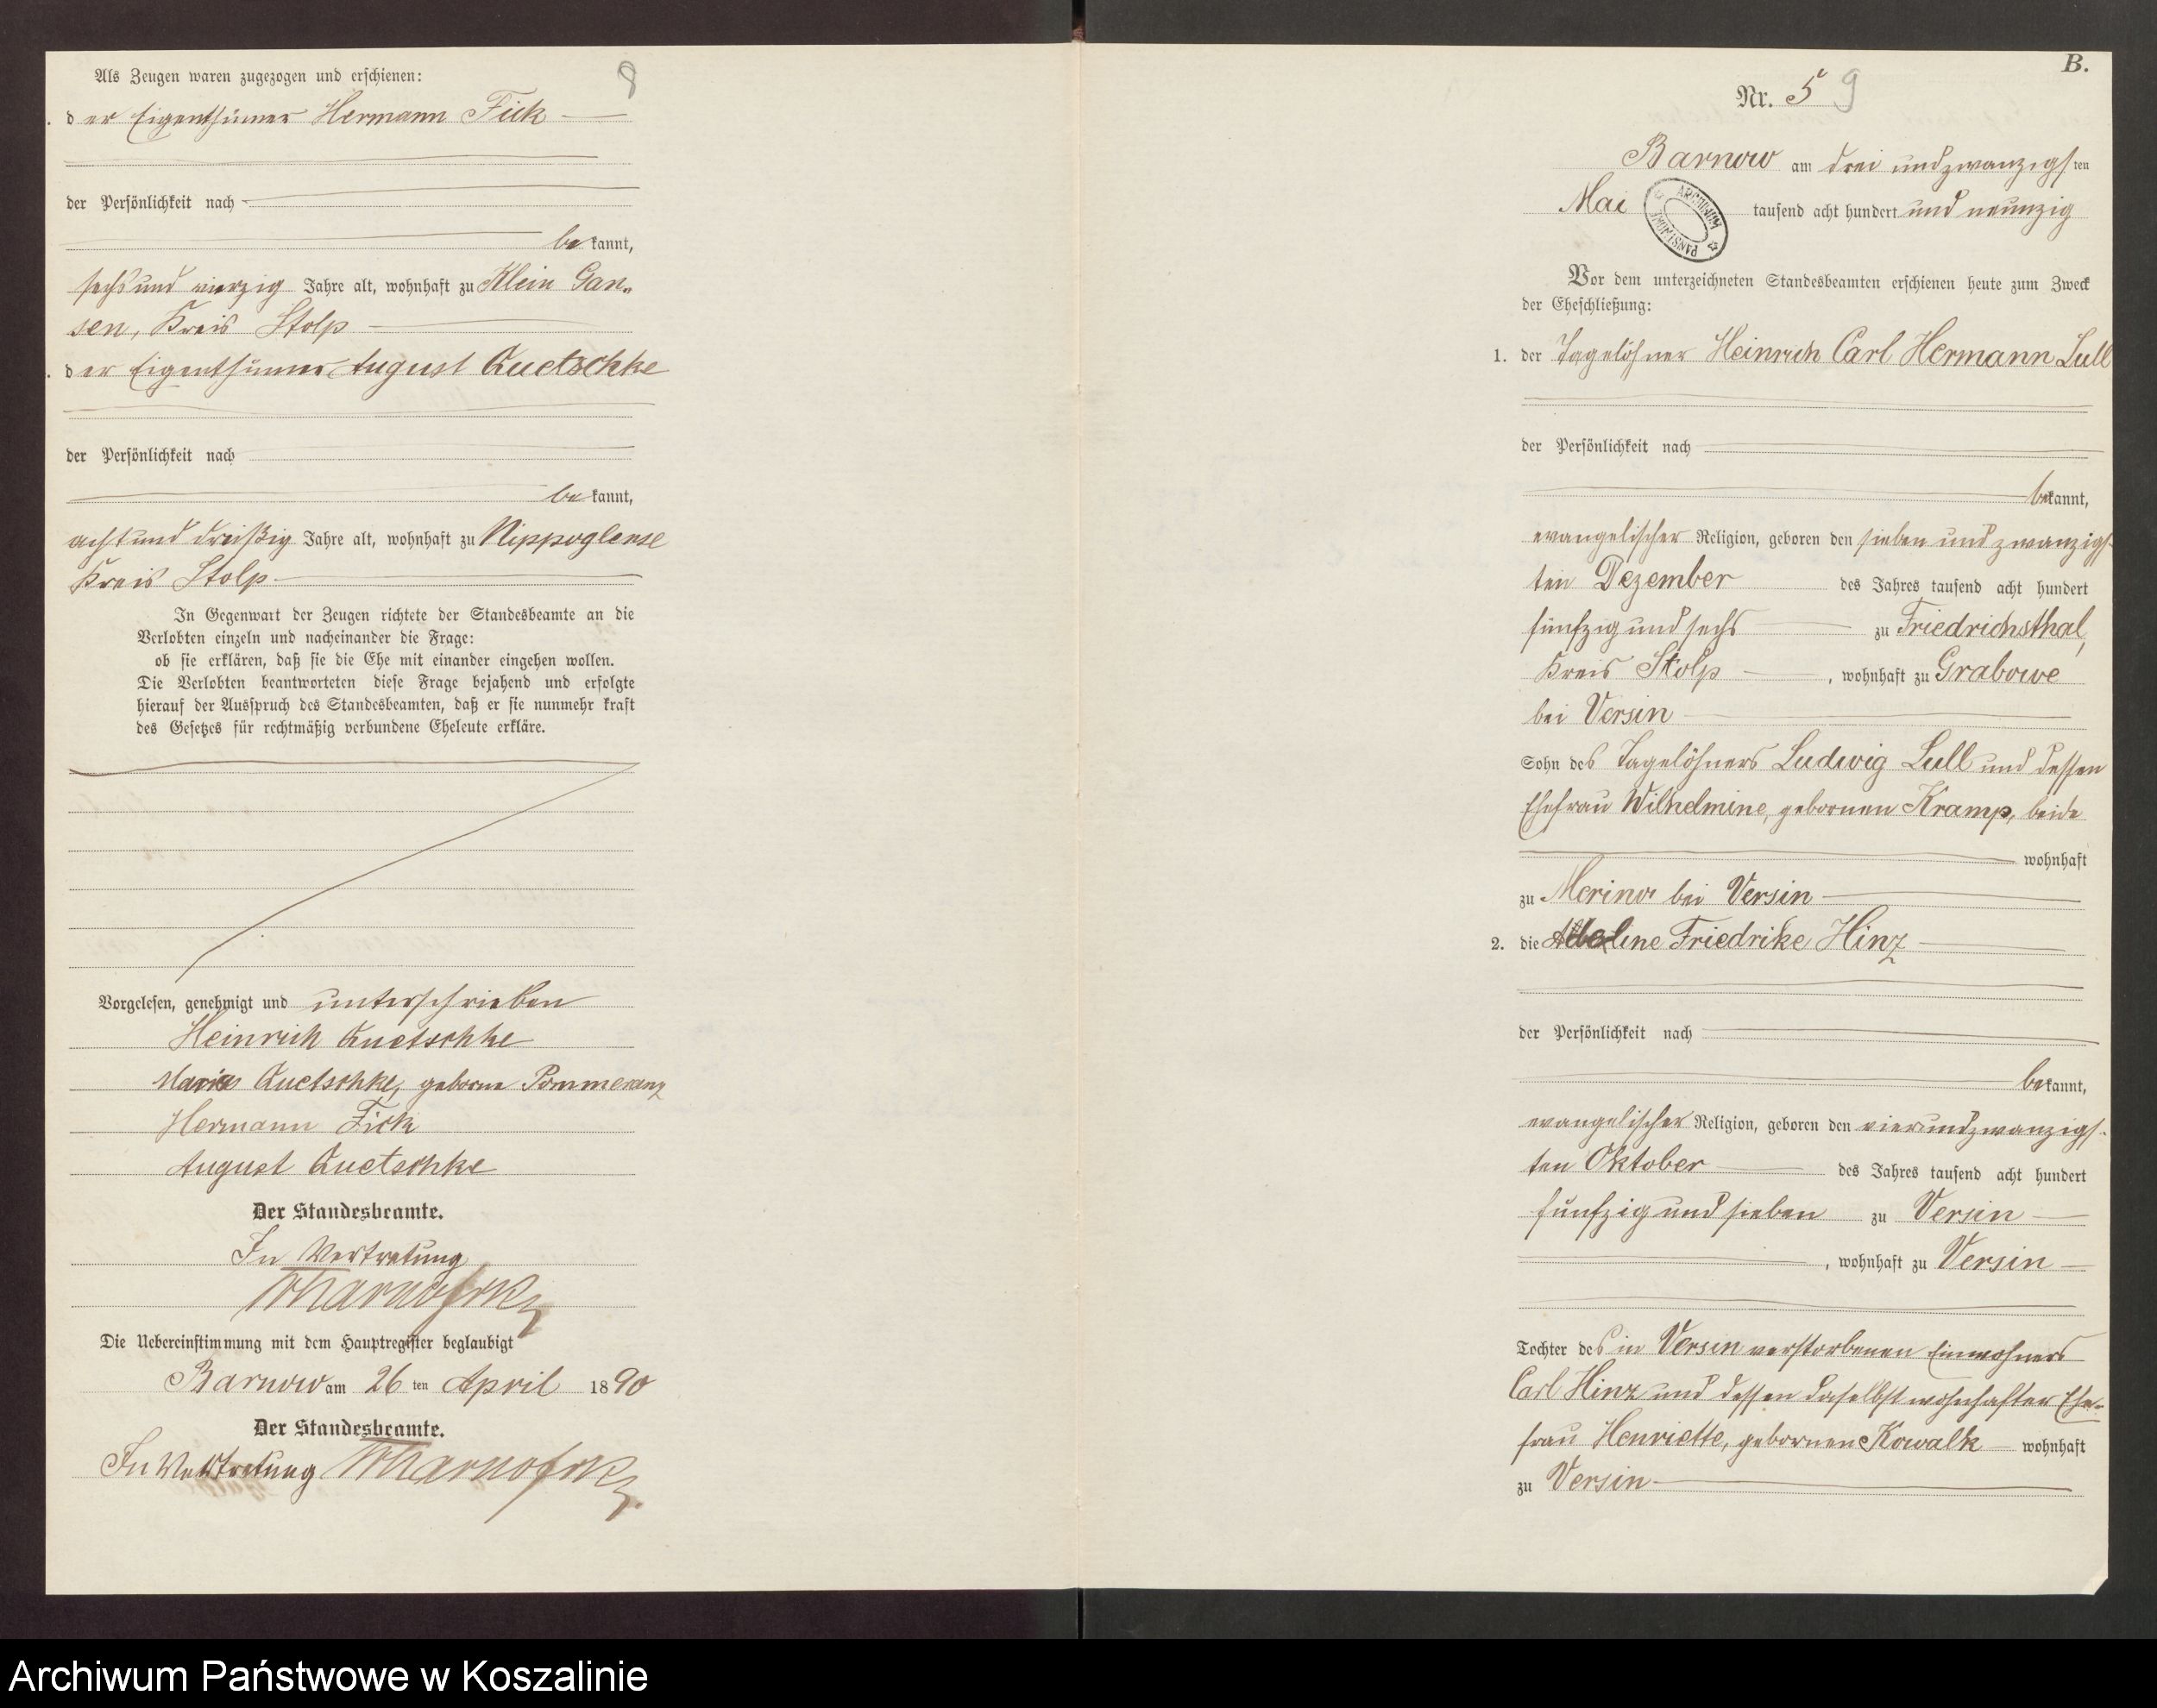 Als Zeugen waren zugezogen und erschienen:
8
. der Eigenthümer Hermann Fick
der Persönlichkeit nach
bekannt,
sechs und vierzig Jahre alt, wohnhaft zu Klein Gan-
sen, Kreis Stolp
. der Eigenthümer August Quetschke
der Persönlichkeit nach
bekannt,
acht und dreißig Jahre alt, wohnhaft zu Nippoglense
Kreis Stolp
In Gegenwart der Zeugen richtete der Standesbeamte an die
Verlobten einzeln und nacheinander die Frage:
ob sie erklären, daß sie die Ehe mit einander eingehen wollen.
Die Verlobten beantworteten diese Frage bejahend und erfolgte
hierauf der Ausspruch des Standesbeamten, daß er sie nunmehr kraft
des Gesetzes für rechtmäßig verbundene Eheleute erkläre.
Vorgelesen, genehmigt und unterschrieben
Heinrich Quetschke
Marie Quetschke, geborne Pommerenz
Hermann Fick
August Quetschke
Der Standesbeamte.
In Vertretung
Die Uebereinstimmung mit dem Hauptregister beglaubigt
Barnow am 26 ten April 1890
Der Standesbeamte.
In Vertretung
B.
Nr. 5 9
Barnow am drei und zwanzigsten
Mai tausend acht hundert und neunzig
ARCHIWUM PAŃSTWOWE
Vor dem unterzeichneten Standesbeamten erschienen heute zum Zweck
der Eheschließung:
1. der Tagelöhner Heinrich Carl Hermann Lull
der Persönlichkeit nach
bekannt,
evangelischer Religion, geboren den sieben und zwanzigs-
ten Dezember des Jahres tausend acht hundert
fünfzig und sechs zu Friedrichsthal,
Kreis Stolp, wohnhaft zu Grabowe
bei Versin
Sohn des Tagelöhners Ludwig Lull und dessen
Ehefrau Wilhelmine, gebornen Kramp, beide
wohnhaft
zu Merino bei Versin
2. die Friedrike Hinz
der Persönlichkeit nach
bekannt,
evangelischer Religion, geboren den vierundzwanzigs-
ten Oktober des Jahres tausend acht hundert
fünfzig und sieben zu Versin
, wohnhaft zu Versin
Tochter des in Versin verstorbenen Einwohners
Carl Hinz und dessen daselbst wohnhafter Ehe-
frau Henriette, gebornen Kowalk wohnhaft
zu Versin
Archiwum Państwowe w Koszalinie